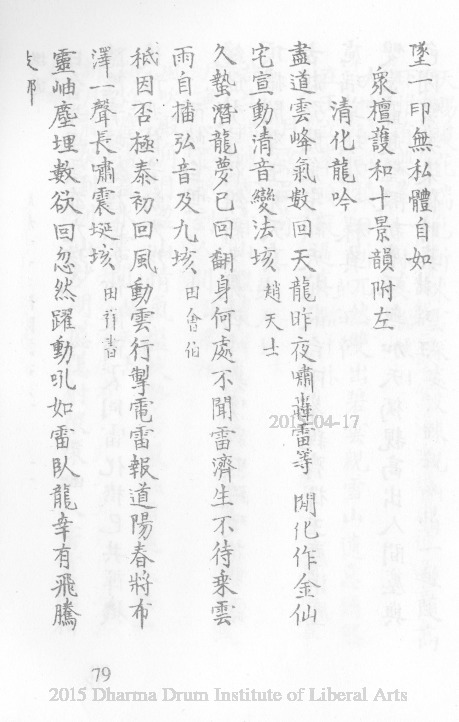 墜一印無私體自如
眾檀護和十景韻附左
清化龍吟
盡道雲峰氣數回天龍昨夜嘯 雷等閒化作金仙
宅宣動清音變法垓趙天士
久蟄潛龍夢已回翻身何處不聞雷濟生不待乘雲
雨自播弘音及九垓田會伯
秪因否極泰初回風動雲行掣電雷報道陽春將布
澤一聲長嘯震埏垓田 書
靈岫塵埋數欲回忽然躍動吼如雷臥龍幸有飛騰
79
2015-04-17
2015 Dharma Drum Institute of Liberal Arts